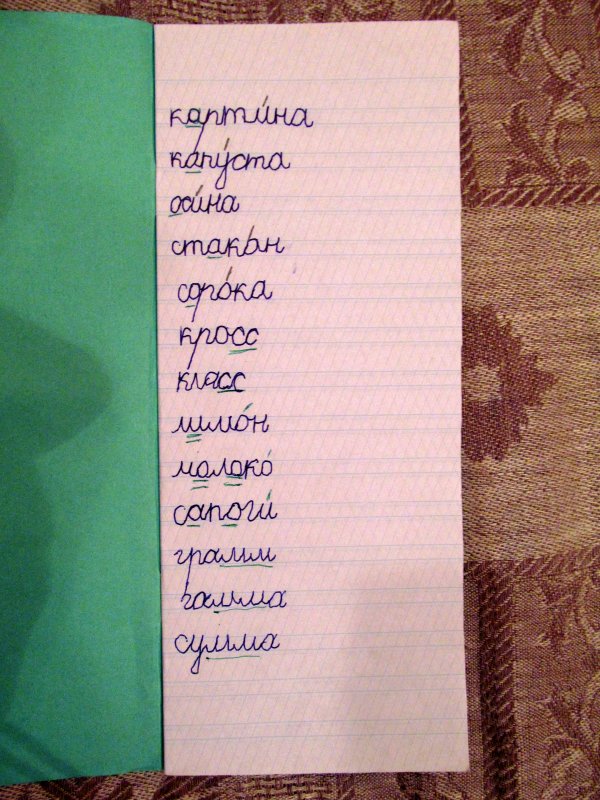 карти́на
капу́ста
оси́на
стака́н
соро́ка
кросс
класс
лимо́н
молоко́
сапоги́
грамм
гамма
сумма